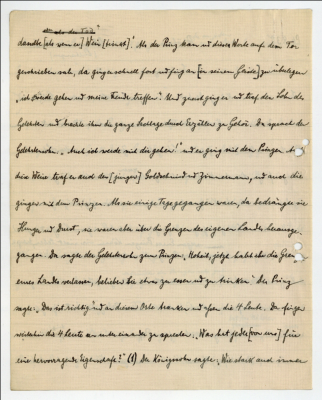 dasselbe [als wenn er] Wein [trinkt]." Als der Prinz kam und diese Worte auf dem Tor
geschrieben sah, da ging er schnell fort und fing an [in seinem Geiste] zu überlegen
"ich werde gehen und meine Freunde treffen." Und zuerst ging er und traf den Sohn des
Gelehrten und brachte ihm die ganze Sachlage durch Erzählen zu Gehör. Da sprach der
Gelehrtensohn "Auch ich werde mit dir gehen!" und er ging mit dem Prinzen.
diese Weise traf er auch den [jungen] Goldschmied und Zimmermann, und auch die
gingen mit dem Prinzen. Als sie einige Tage gegangen waren, da bedrängte sie
Hunger und Durst, sie waren aber über die Grenzen des eigenen Landes herausge-
gangen. Da sagte der Gelehrtensohn zum Prinzen "Hoheit, jetzt habt ihr die Grenze
eures Landes verlassen, belieben Sie etwas zu essen und zu trinken." Der Prinz
sagte: "Das ist richtig" und an diesem Orte tranken und aßen die 4 Leute. Da fingen
die 4 Leute an unter einander zu sprechen. "Was hat jeder [von uns] für
eine hervorragende Eigenschaft?" (1) Der Königssohn sagte: "Wie stark auch immer